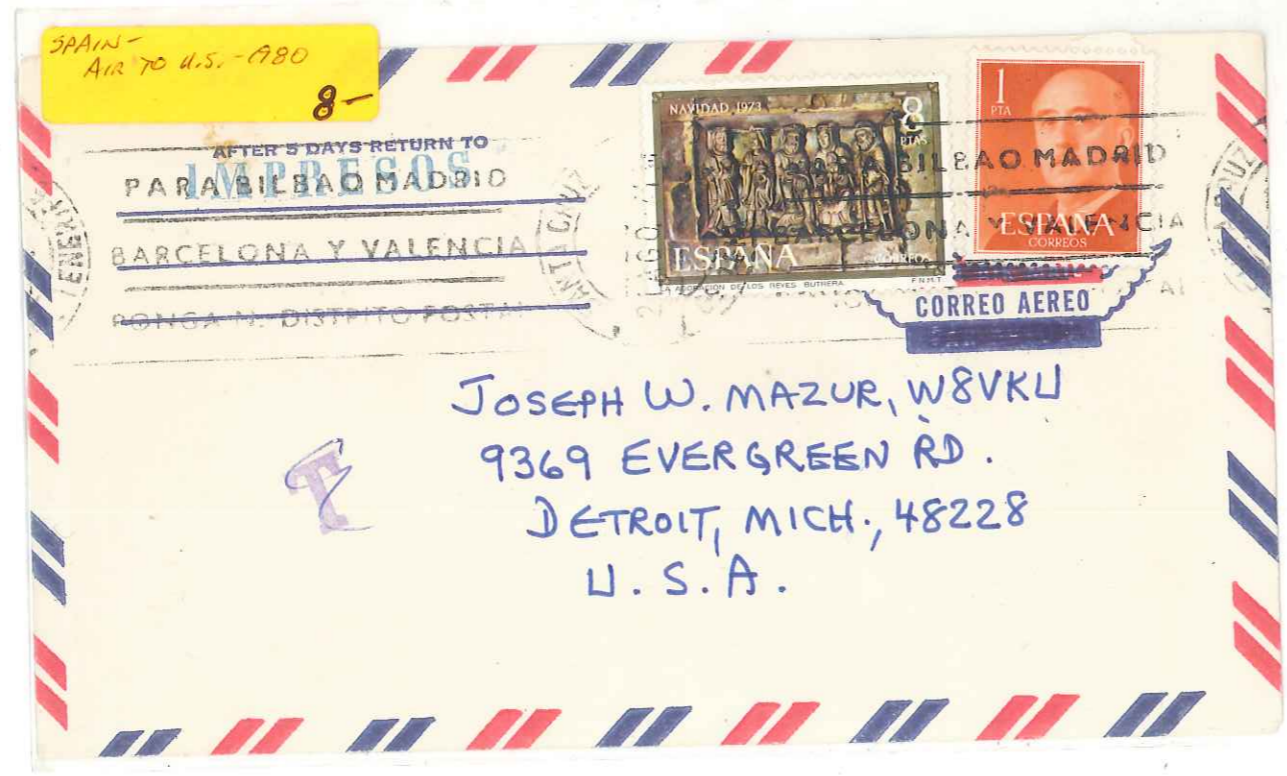 SPAIN-
AIR TO U.S. - 1980
8-
AFTER 5 DAYS RETURN TO
IMPRESOS
PARA BILBAO MADRID
BARCELONA Y VALENCIA
PONGA N. DISTRITO POSTAL
NAVIDAD 1973
8
PTAS
ESPAÑA
CORREOS
LA ADORACION DE LOS REYES BUTRERA
F.N.M.T.
1
PTA
ESPAÑA
CORREOS
PARA BILBAO MADRID
BARCELONA Y VALENCIA
CORREO AEREO
T
JOSEPH W. MAZUR, W8VKU
9369 EVERGREEN RD.
DETROIT, MICH., 48228
U.S.A.